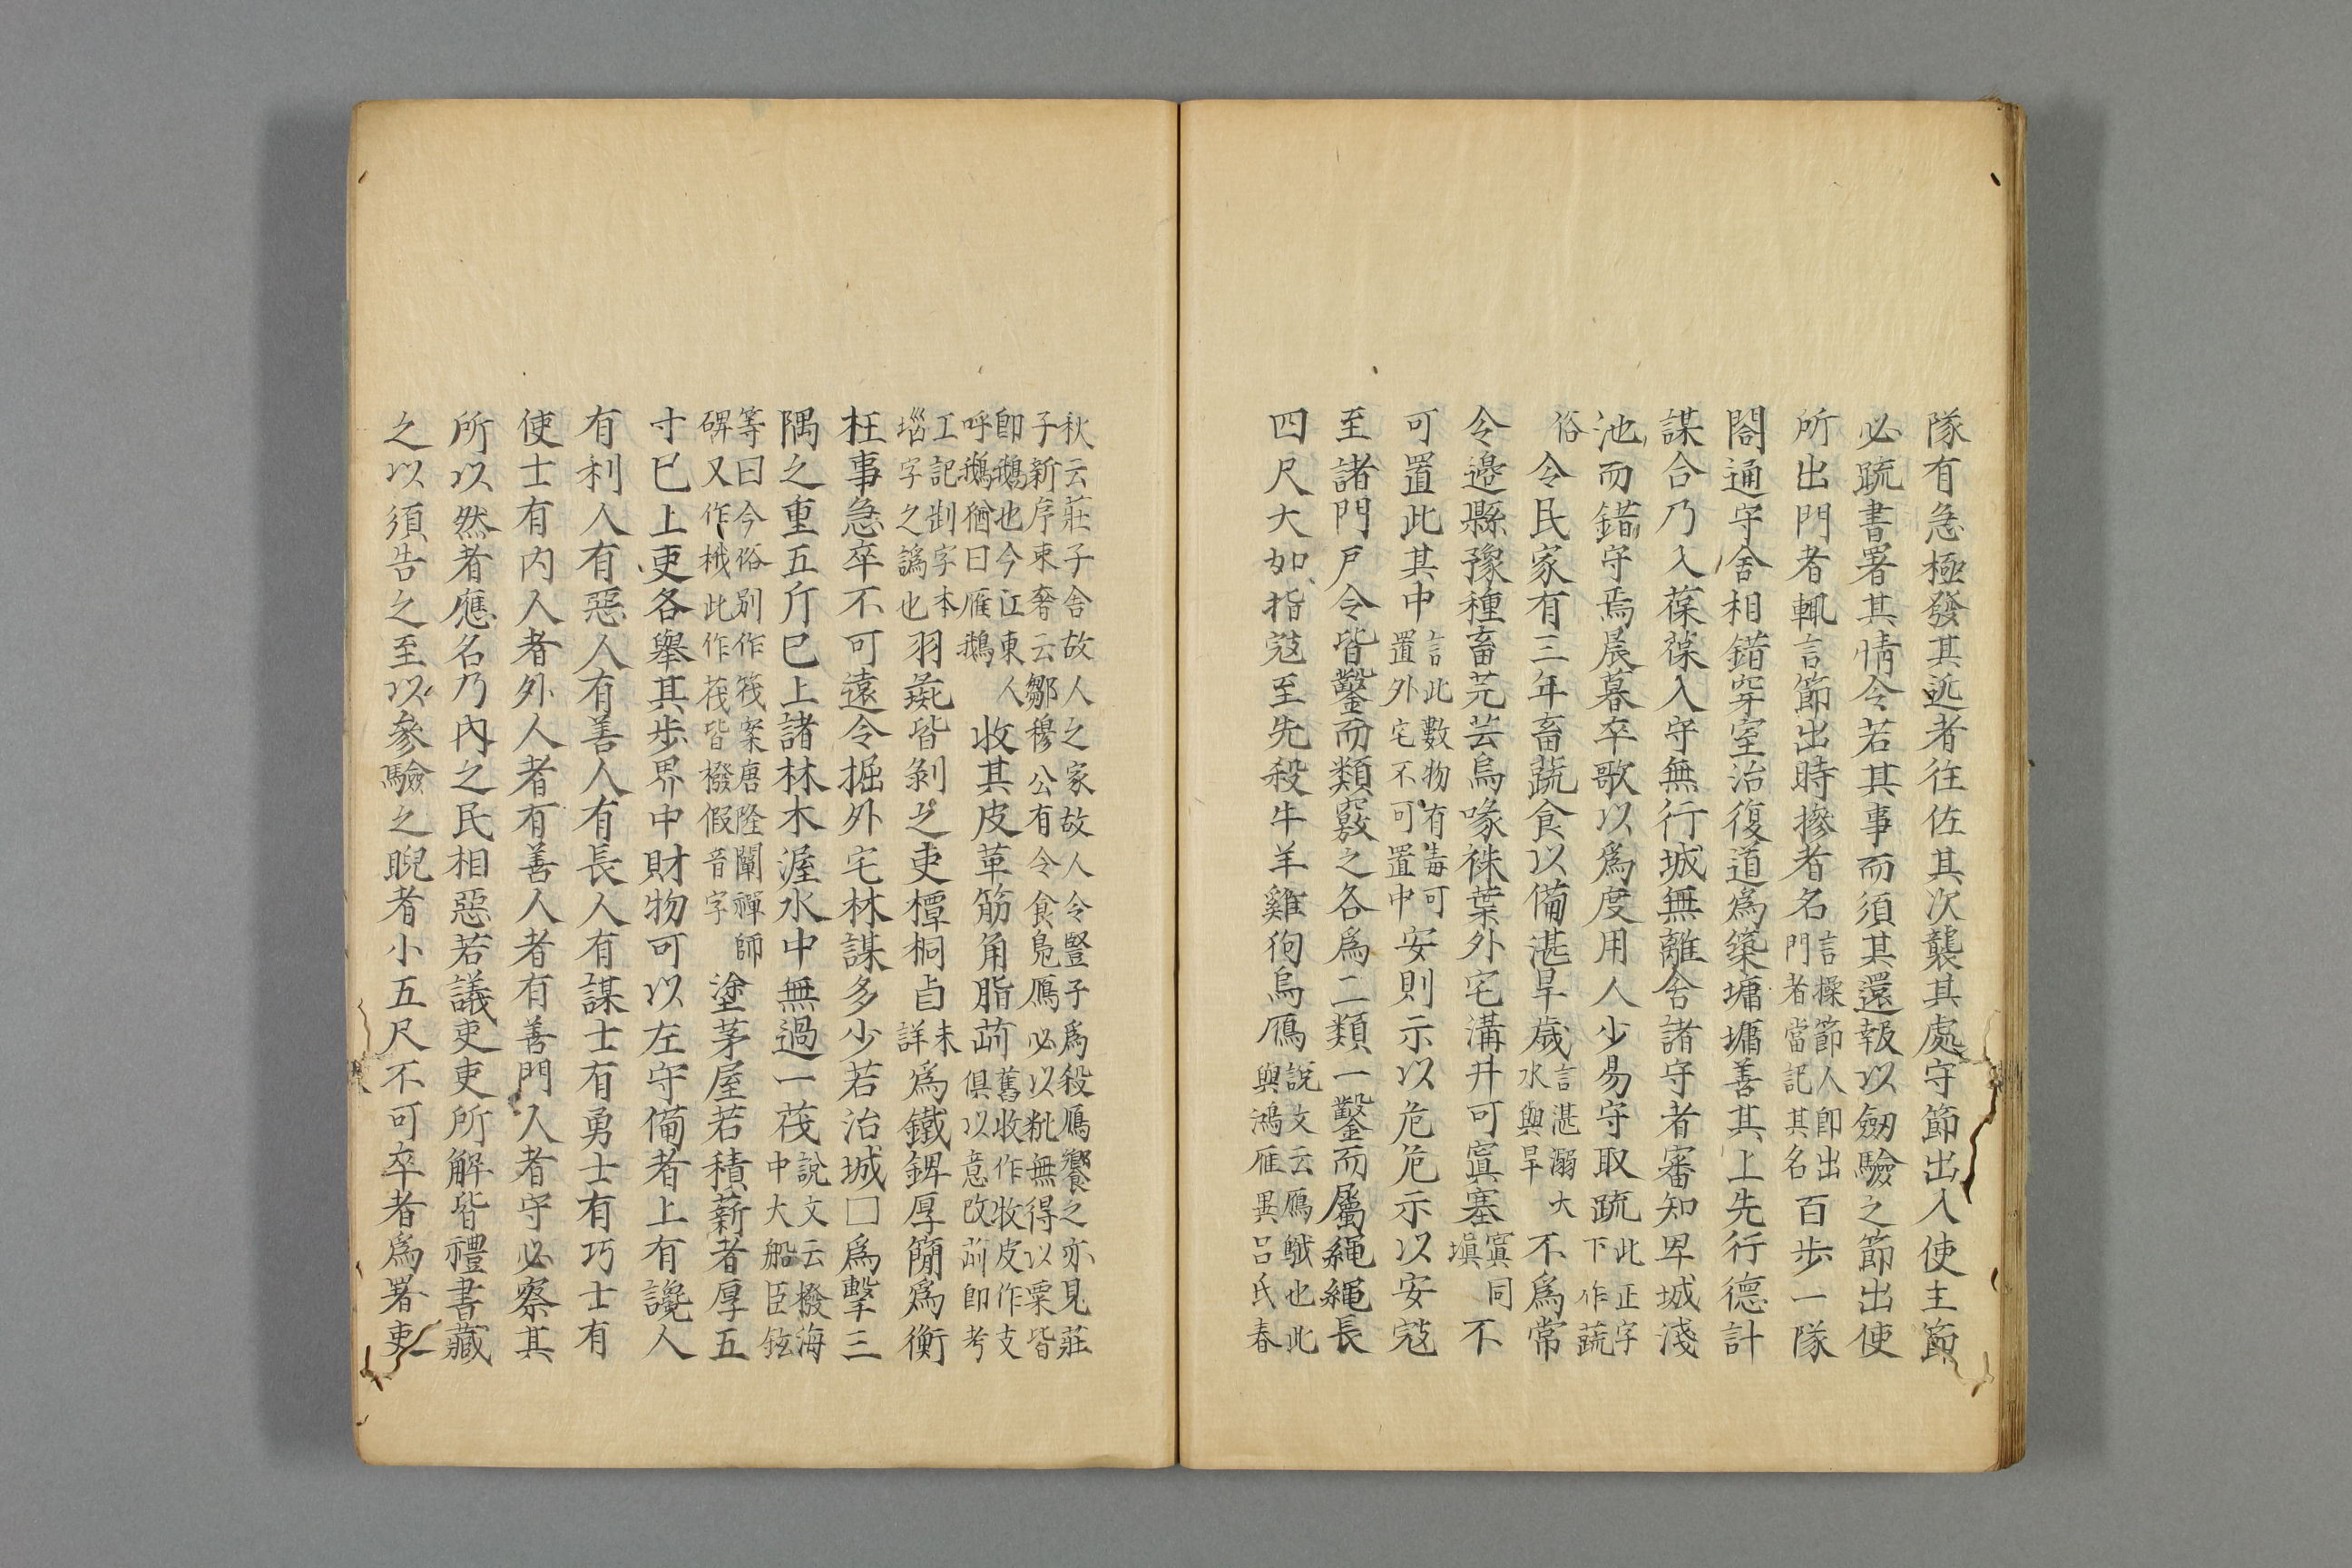 隊有急極發其近者往佐其次襲其處守節出入使主節
必疏書署其情令若其事而須其還報以劒驗之節出使
所出門者輒言節出時摻者名言摻節人即出門者當記其名百步一隊
閤通守舍相錯穿室治復道爲築墉墉善其上先行德計
謀合乃入葆葆入守無行城無離舍諸守者審知卑城淺
池而錯守焉晨暮卒歌以爲度用人少易守取疏此正字下作蔬
俗令民家有三年畜蔬食以備湛旱歲言湛溺大水與旱不爲常
令邊縣豫種畜芫芸烏喙袾葉外宅溝井可窴塞窴同塡不
可置此其中言此數物有毒可置外宅不可置中安則示以危危示以安寇
至諸門戶令皆鑿而類竅之各爲二類一鑿而屬繩繩長
四尺大如指寇至先殺牛羊雞狗烏鴈說文云鴈䳘也此與鴻雁異呂氏春
秋云莊子舍故人之家故人令豎子爲殺鴈饗之亦見莊子新序東奢云鄒穆公有令食鳧鴈必以粃無得以粟皆
即鵝也今江東人呼鵝猶曰雁鵝收其皮革筋角脂䓊舊收作牧皮作支俱以意改䓊即考
工記剒字本㛴字之譌也羽彘皆剝之吏橝桐卣未詳爲鐵錍厚簡爲衡
枉事急卒不可遠令掘外宅林謀多少若治城囗爲擊三
隅之重五斤已上諸林木渥水中無過一茷說文云撥海中大船臣鉉
等曰今俗別作筏案唐隆闡禪師碑又作栰此作茷皆撥假音字塗茅屋若積薪者厚五
寸已上吏各舉其步界中財物可以左守備者上有讒人
有利人有惡人有善人有長人有謀士有勇士有巧士有
使士有内人者外人者有善人者有善門人者守必察其
所以然者應名乃內之民相惡若議吏吏所解皆禮書藏
之以須告之至以參驗之睨者小五尺不可卒者爲署吏